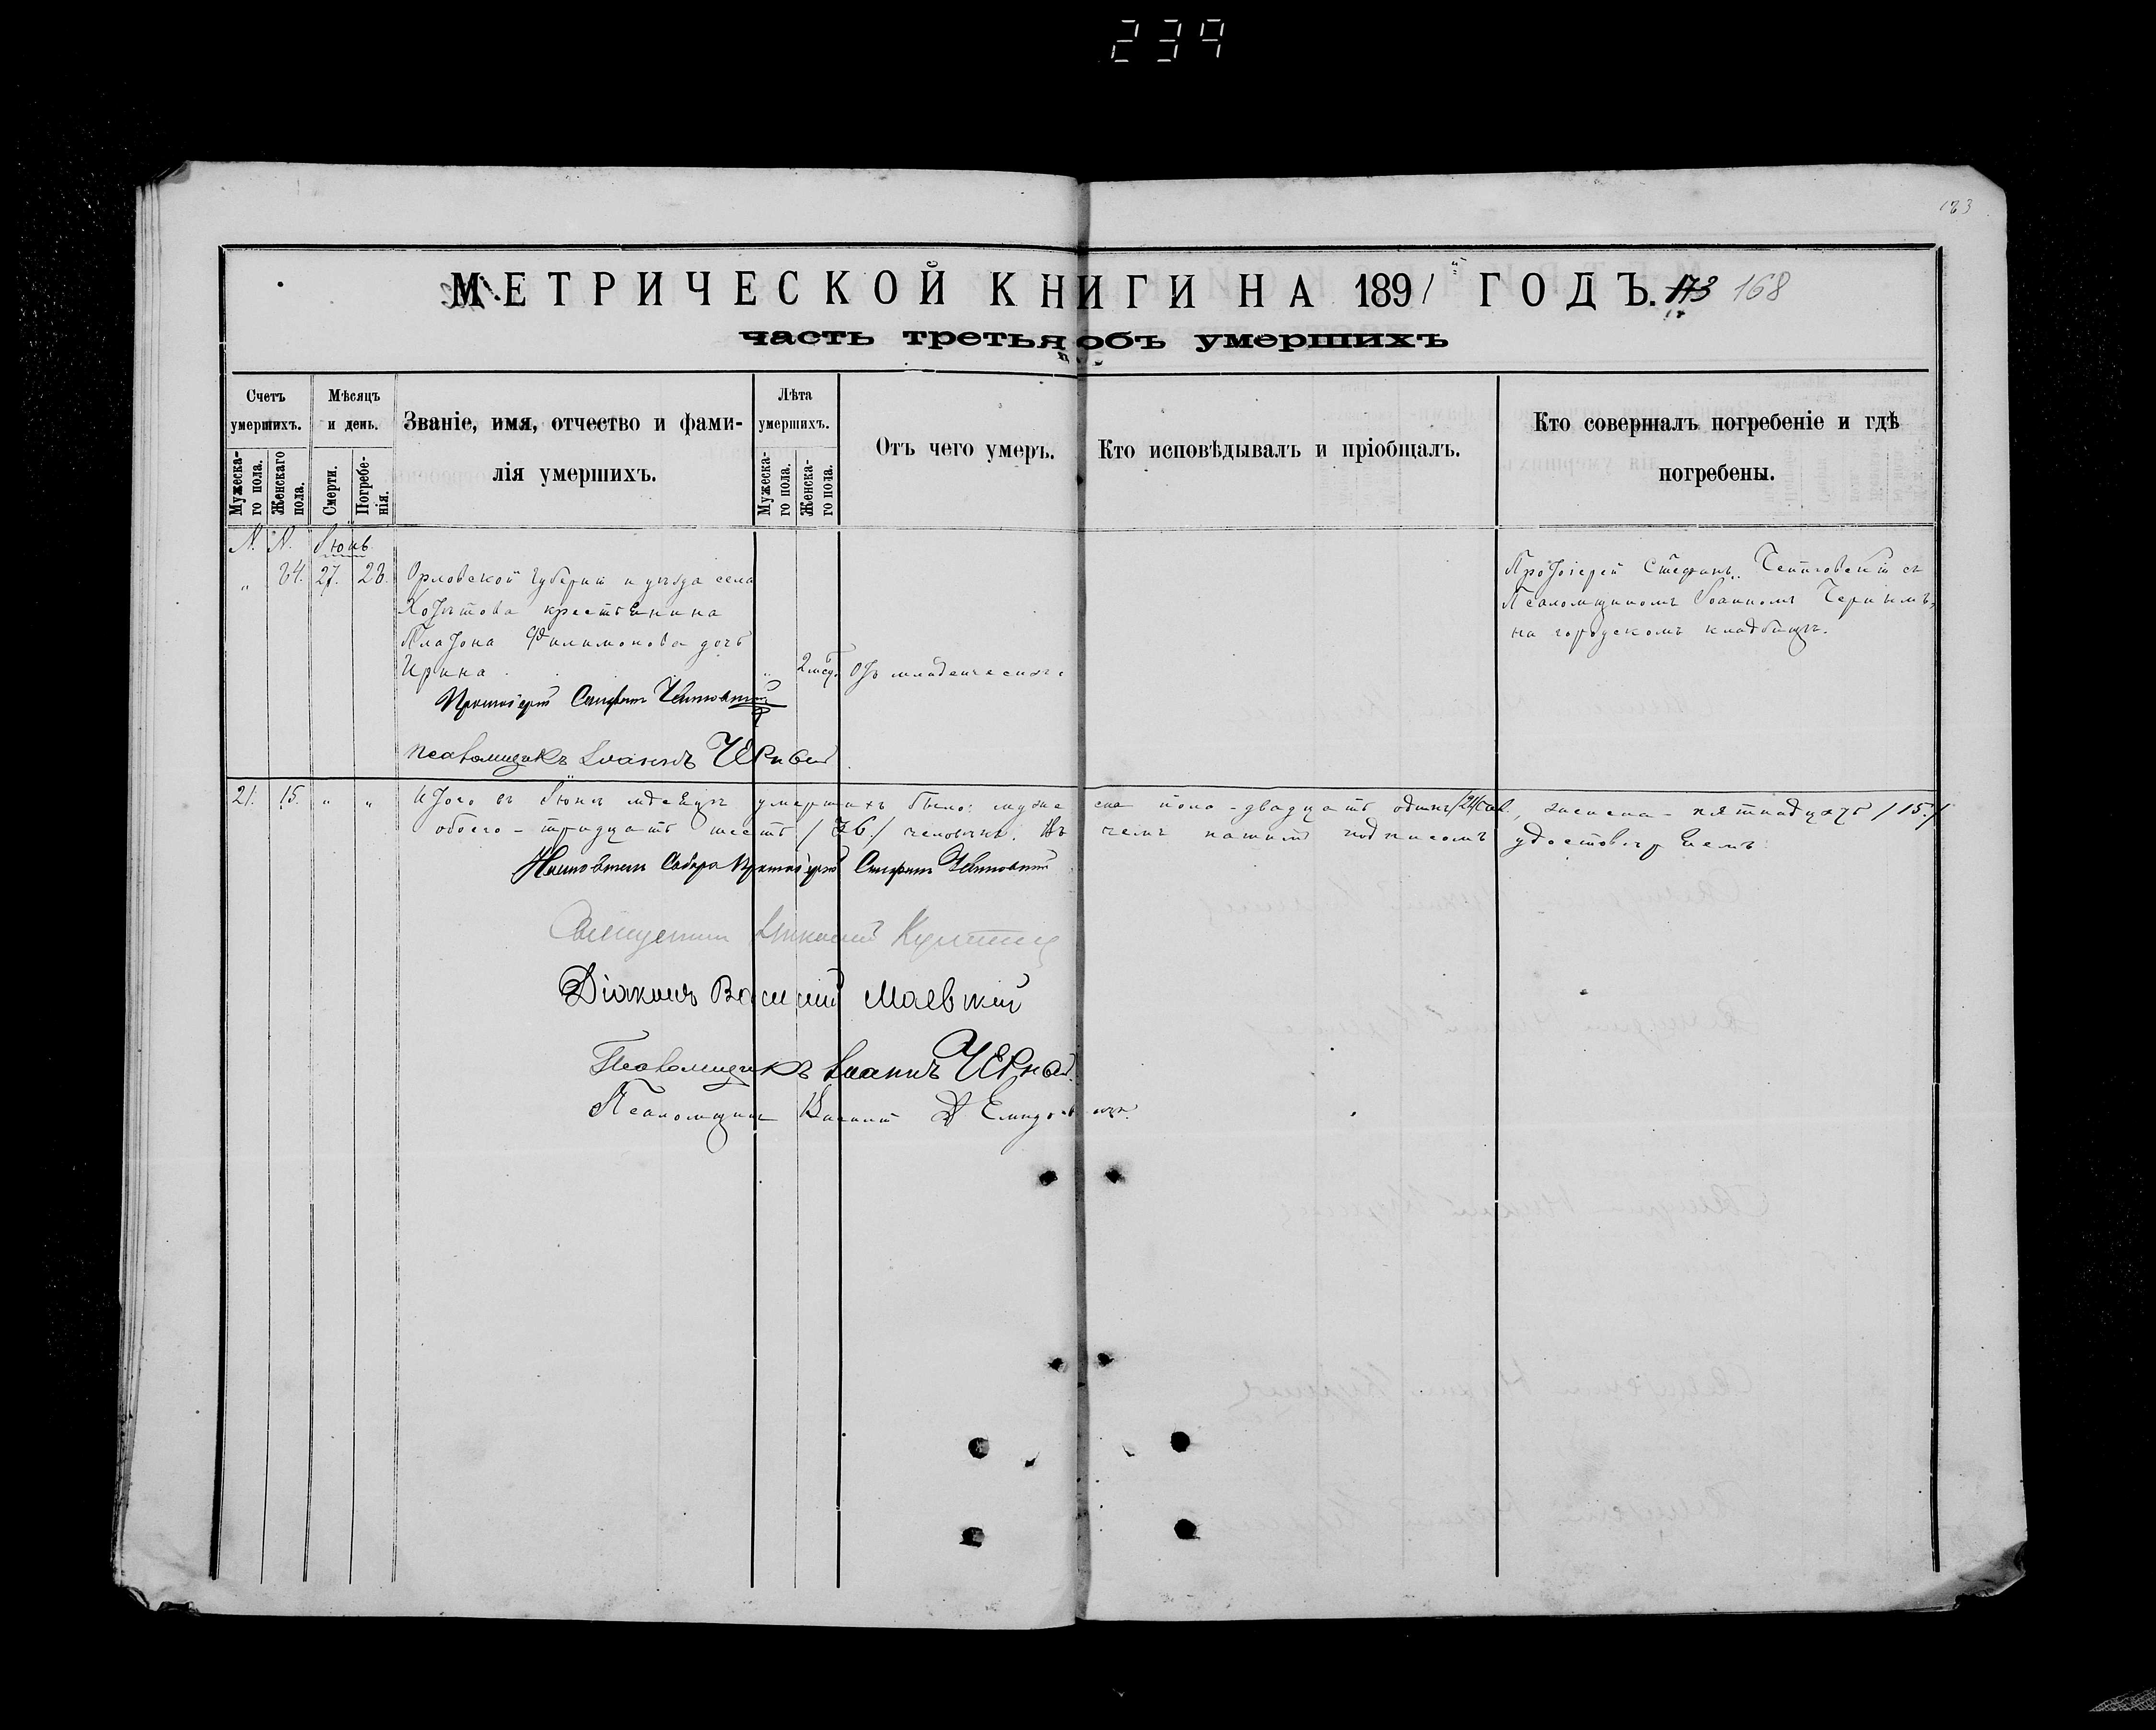 239
183
МЕТРИЧЕСКОЙ КНИГИ НА 1891 ГОДЪ. 173 168
часть третья объ умершихъ
Счетъ умершихъ.
Мужеска-го пола.
Женскаго пола.
Мѣсяцъ и день.
Смерти.
Погребе-нія.
Званіе, имя, отчество и фами-
лія умершихъ.
Лѣта умершихъ.
Мужеска-го пола.
Женска-го пола.
Отъ чего умеръ.
Кто исповѣдывалъ и пріобщалъ.
Кто совершалъ погребеніе и гдѣ
погребены.
N. N. Іюнь
" 84. 27. 28. Орловской губерніи и уѣзда села
Хотѣтова крестьянина
Платона Филимонова дочь
Ирина " 2 мѣс. Отъ младенческихъ
Протоіерей Стефанъ
Псаломщикомъ Іоанномъ Чернымъ,
на городскомъ кладбищѣ.
Протоіерей Стефанъ
псаломщикъ Іоаннъ Черный
21. 15. " " Итого въ Іюнѣ мѣсяцѣ умершихъ было: муже ска пола - двадцать одинъ /21/ чел., женска - пятнадцать /15./
обоего - тридцать шесть /36./ человѣкъ. Въ чемъ нашимъ подписомъ удостовѣряемъ:
Настоятель Собора Протоіерей Стефанъ
Священникъ Николай
Діаконъ Василій Маевскій
Псаломщикъ Іоаннъ Черный
Псаломщикъ Василій